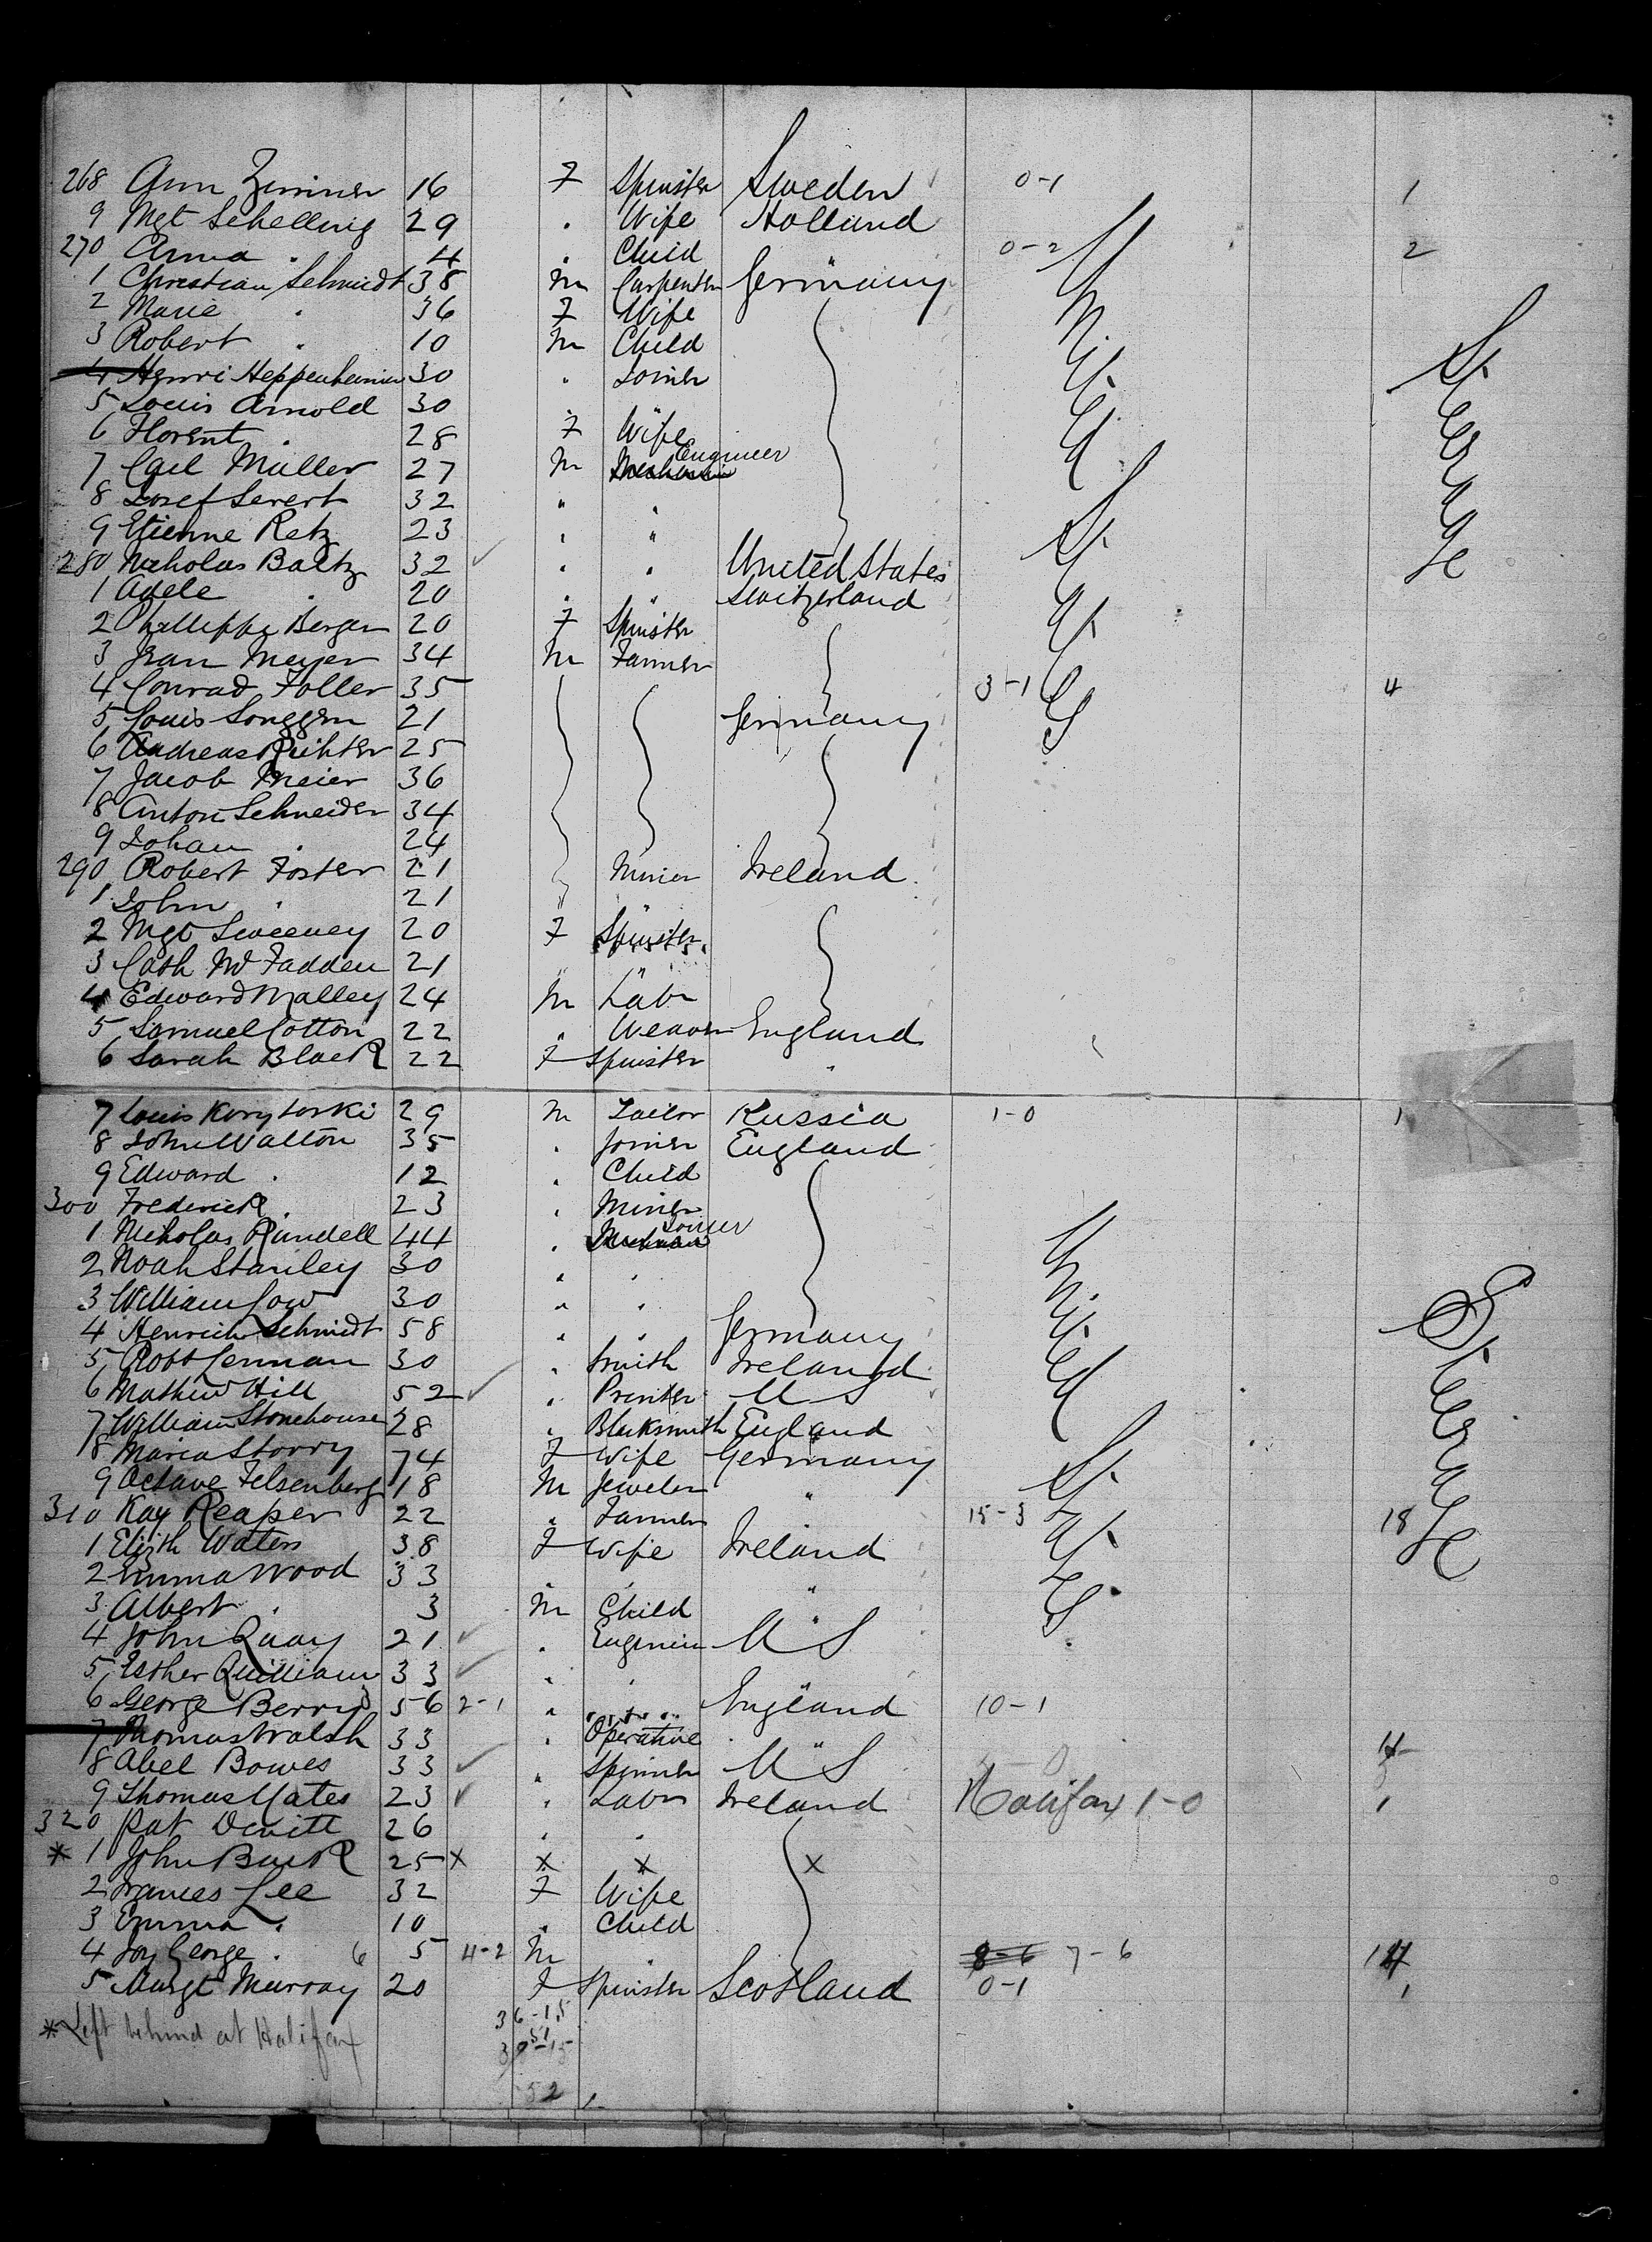 268 Ann Zimmer 16 F Spinster Sweden 0-1 1
9 Mgt Schelling 29 " Wife Holland
270 Anna " 4 " Child " 0-2 2
1 Christian Schmidt 38 m Carpenter Germany
2 Marie " 36 F Wife
3 Robert " 10 m Child
4 Henri Heppenheimer 30 " Joiner
5 Louis Arnold 30 "
6 Florent " 28 F Wife
7 Carl Muller 27 m Engineer
8 Josef Severt 32 " "
9 Etienne Retz 23 " "
280 Nicholas Baltz 32 ✓ " " United States
1 Adele " 20 " " Switzerland
2 Phillippe Berger 20 F Spinster
3 Jean Meyer 34 m Farmer
4 Conrad Foller 35 3-1 4
5 Louis 21 Germany
6 Andreas Richter 25
7 Jacob Meier 36
8 Anton Schneider 34
9 Johan " 24
290 Robert Foster 21 Miner Ireland
1 John " 21 " "
2 Mgt Sweeney 20 F Spinster
3 Cath McFadden 21 " "
4 Edward Malley 24 m Labr
5 Samuel Cotton 22 " Weaver England
6 Sarah Black 22 F Spinster "
7 Louis Korytorski 29 m Tailor Russia 1-0 1
8 John Walton 35 " Joiner England
9 Edward " 12 " Child
300 Frederick " 23 " Miner
1 Nicholas Rundell 44 " Joiner
2 Noah Stanley 30 " "
3 William Cow 30 " "
4 Henrich Schmidt 58 " " Germany
5 Robt Jennan 30 " Smith Ireland
6 Mathew Hill 52 ✓ " Printer U S
7 William Stonehouse 28 " Blacksmith England
8 Maria Storry 74 F Wife Germany
9 Octave Felsenberg 18 m Jeweler "
310 Kay Reaper 22 " Farmer 15-3 18
1 Elizth Waters 38 F Wife Ireland
2 Emma Wood 33 " " "
3 Albert " 3 m Child "
4 John Quay 21 ✓ " Engineer U S
5 Esther Quilliam 33 ✓ " "
6 George Berry 56 2-1 " England 10-1
7 Thomas Walsh 33 " Operative "
8 Abel Bowes 33 ✓ " Spinner U S
9 Thomas Yates 23 ✓ " Labr Ireland Halifax 1-0 1
320 Pat Devitt 26 " "
* 1 John Back 25 x x x x
2 Frances Lee 32 F Wife
3 Emma " 10 " Child
4 Jos George " 6 5 4-2 m " 8-6 7-6
5 Margt Murray 20 F Spinster Scotland 0-1 1
36-15
* Left behind at Halifax
51
52